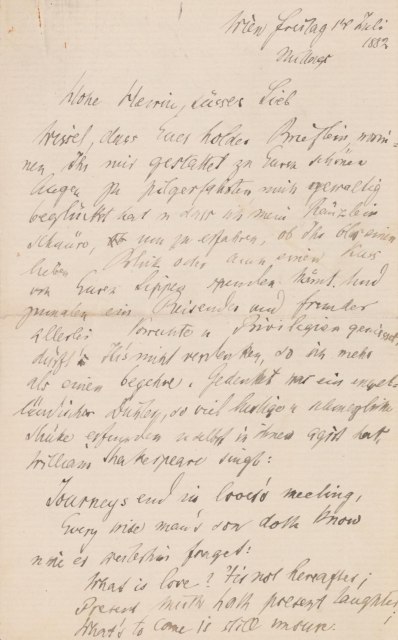 Wien Freitag 14 Juli
1882
Mittags
Hohe Herrin, süsses Lieb
Wisset, dass Euer holdes Brieflein, worin-
nen Ihr mir gestattet zu Euren schönen
Augen zu pilgerfahrten mich gewaltig
beglückt hat u dass ich mein Ränzlein
schnüre, um zu erfahren, ob Ihr blos einen
lieben Blick oder auch einen Kuss
von Euren Lippen spenden könnt. Und
zumalen ein Reisender und fremder
allerlei Vorrechte u Privilegien geniessen
dürft Ihr's nicht verdenken, so ich mehr
als einen begehre. Gedenket was ein
Dichter, so viel lustige u schmerzliche
Stücke erfunden u selbst in ihnen agirt hat,
William Shakespeare singt:
Journeys end in lovers meeting,
Every wise man's son doth know
wie es weiterhin fraget:
What is love? Tis not hereafter;
Present mirth hath present laughter;
What's to come is still unsure.